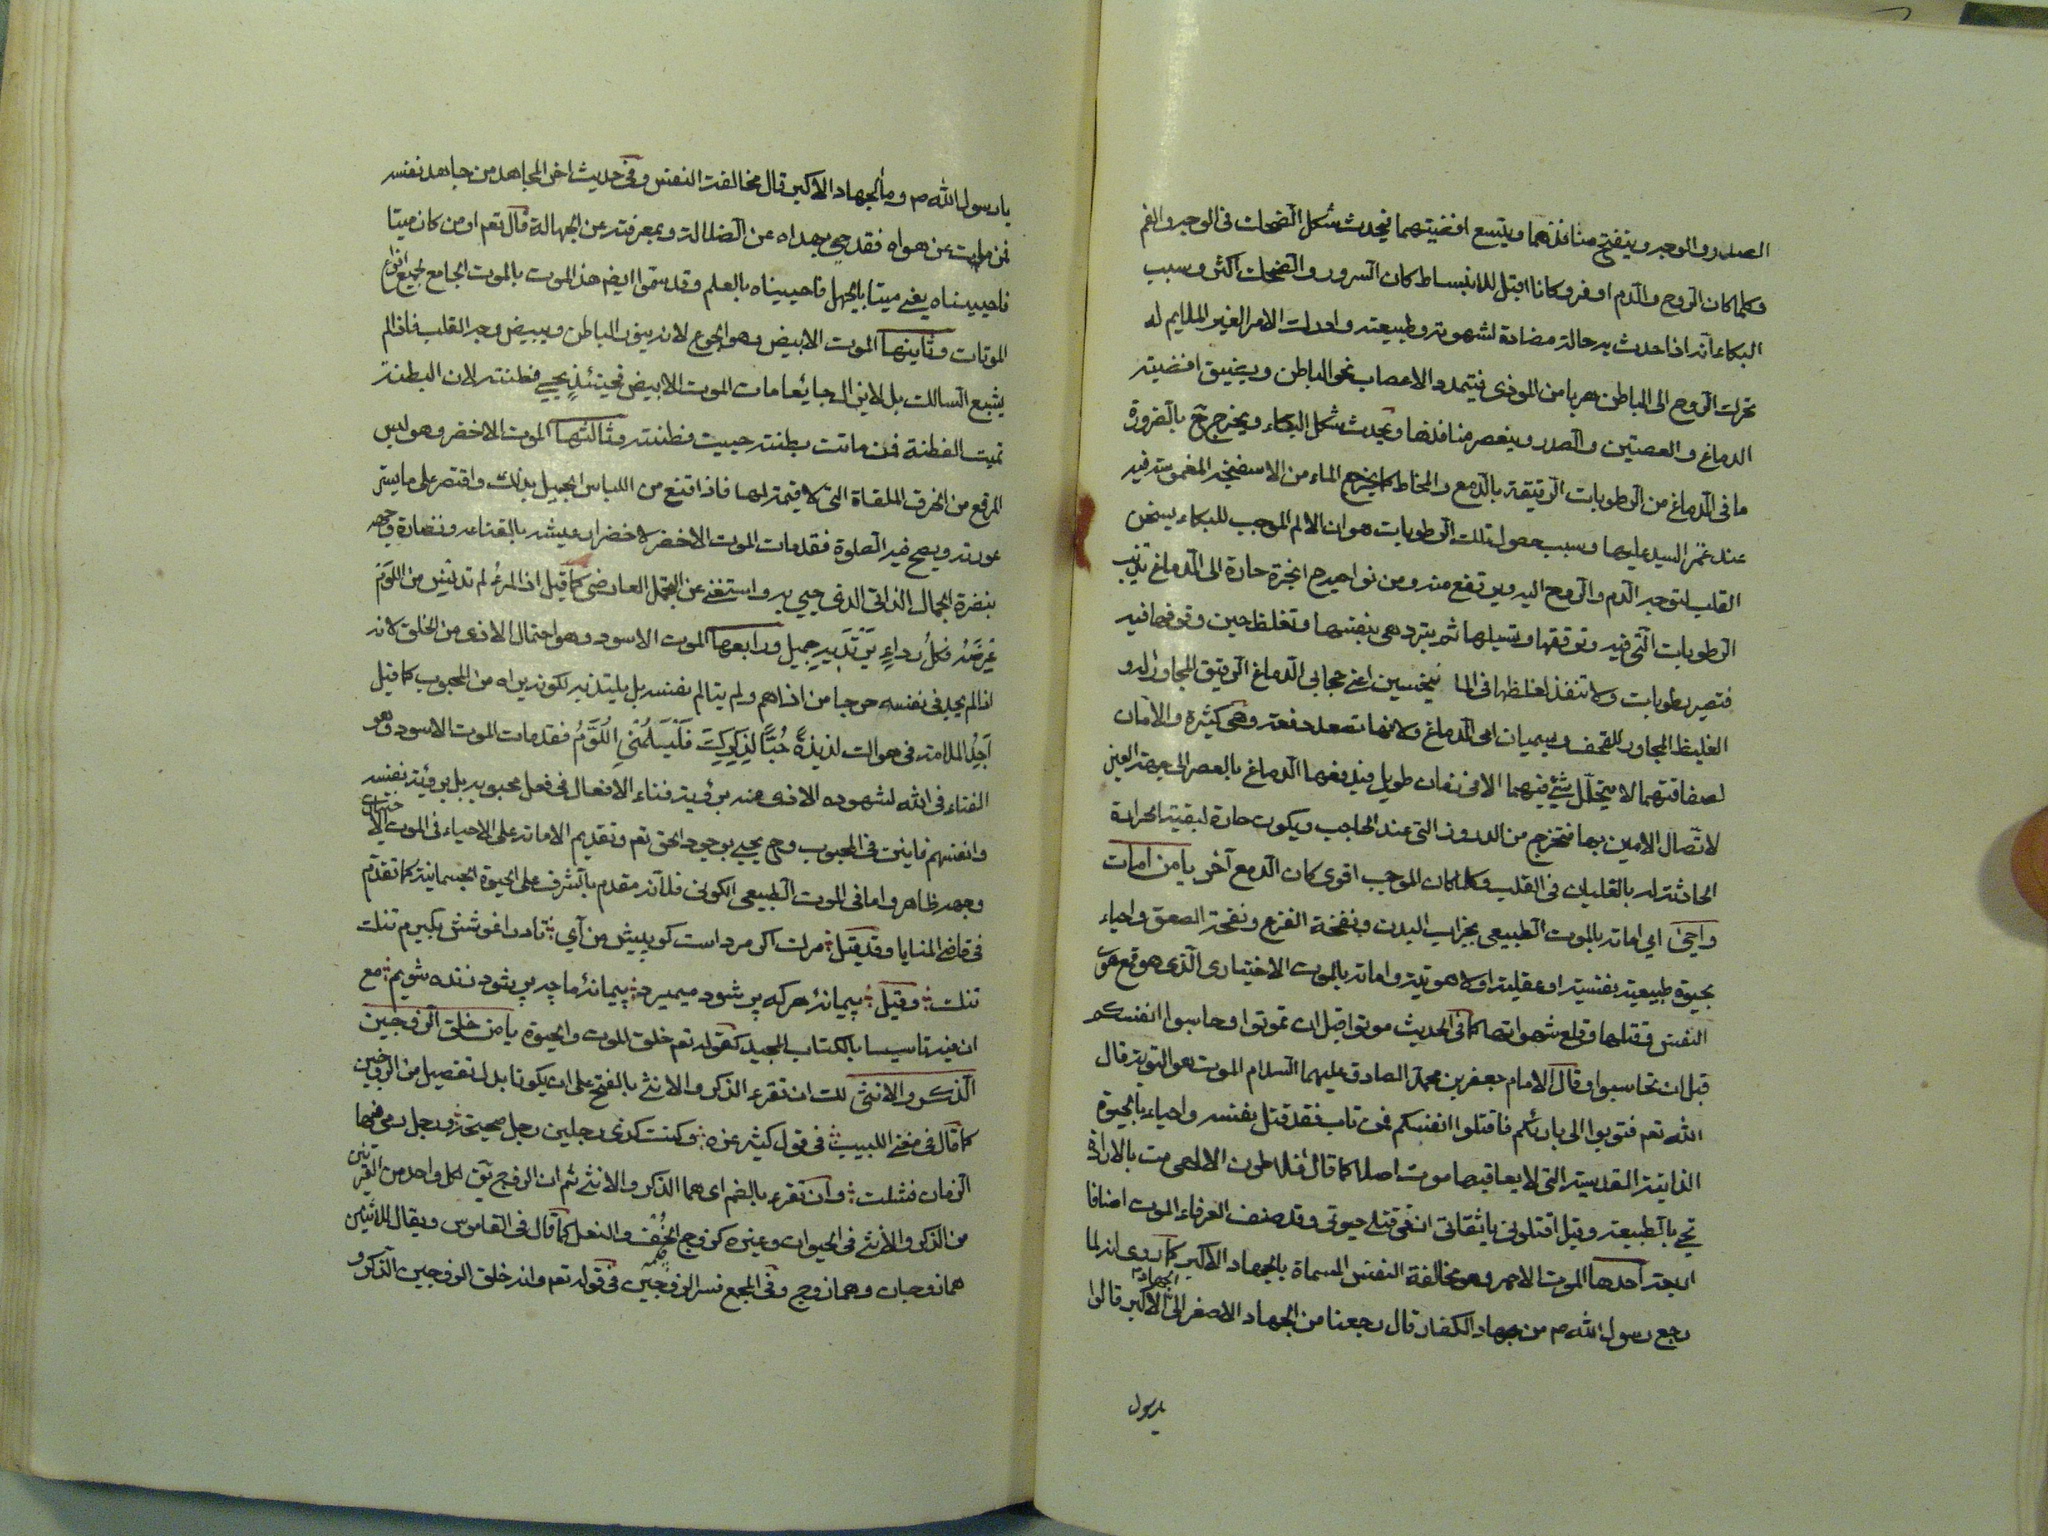 الصدر و الوجه و ينفتح منافذهما و يتسع افضيتهما فيحدث شكل الضحك فی الوجه و الفم
و كلما كان الروح و الدم اوفر و كانا اقبل للانبساط كان السرور و الضحك اكثر و سبب
البكاء انه اذا حدث به حالة مضادة لشهوته و طبيعته و ادرك الامر الغير الملايم له
تحرك الروح الی الباطن هربا من الموذی فيتمدد الاعصاب نحو الباطن و يضيق افضيته
الدماغ و العصبتين و الصدر و ينعصر منافذها و يحدث شكل البكاء و يخرج ح بالضرورة
ما فی الدماغ من الرطوبات الرقيقة بالدمع و المخاط كما يخرج الماء من الاسفنجة المغموسة فيه
عند غمز اليد عليها و سبب حصول تلك الرطوبات هو ان الالم الموجب للبكاء يسخن
القلب لتوجه الدم و الروح اليه و يرتفع منه و من نواحيه ح ابخرة حارة الی الدماغ تذيب
الرطوبات التی فيه و ترققها و تسيلها ثم يتبرد هی بنفسها و تغلظ حين وقوفها فيه
فتصير رطوبات و لا تنفذ لغلظها فی الما نيخسين اعنی حجابی الدماغ الرقيق المجاور له و
الغليظ المجاور للقحف و يسميان امی الدماغ و لانها تصعد دفعة و هی كثيرة و الامان
لصفاقتهما لا يتخلل شیء فيهما الا فی زمان طويل فيدفعها الدماغ بالعصر الی جهة العين
لاتصال الامين بها فتخرج من الدروز التی عند الحاجب و يكون حارة لبقية الحرارة
الحادثة له بالغليان فی القلب و كلما كان الموجب اقوی كان الدمع آخر يا من امات
و احيی ای اماته بالموت الطبيعی بخراب البدن و بنفخة الفزع و نفخة الصعق و احياء
بحيوة طبيعية نفسية او عقلية او لاهوتية و اماته بالموت الاختياری الذی هو قمع هوی
النفس و قتلها و قلع شهواتها كما فی الحديث موتوا قبل ان تموتوا و حاسبوا انفسكم
قبل ان تحاسبوا و قال الامام جعفر بن محمد الصادق عليهما السلام الموت هو التوبة قال
الله تعم فتوبوا الی بارئكم فاقتلوا انفسكم فمن تاب فقد قتل نفسه و احياء بالحيوة
الذاتية القدسية التی لا يعاقبها موت اصلا كما قال افلاطون الالهی مت بالارادة
تحی بالطبيعة و قيل اقتلونی يا ثقاتی ان فی قتلی حيوتی و قد صنف العرفاء الموت اصنافا
اربعة احدها الموت الاحمر و هو مخالفة النفس المسماة بالجهاد الاكبر كما روی انه لما
رجع رسول الله ص من جهاد الكفار قال رجعنا من الجهاد الاصغر الی الجهاد الاكبر قالوا
يا رسول
يا رسول الله ص و ما الجهاد الاكبر قال مخالفة النفس و فی حديث اخر المجاهد من جاهد نفسه
فمن مات عن هواه فقد حيی بهداه عن الضلالة و بمعرفته عن الجهالة قال تعم او من كان ميتا
فاحييناه يعنی ميتا بالجهل فاحييناه بالعلم و قد سموا ايضم هذا الموت بالموت الجامع لجميع انواع
الموتات و ثانيها الموت الابيض و هو الجوع لانه ينور الباطن و يبيض وجه القلب فاذا لم
يشبع السالك بل لا يزال جائعا مات الموت الابيض فحينئذ يحيی فطنته لان البطنة
تميت الفطنة فمن ماتت بطنته حييت فطنته و ثالثها الموت الاخضر و هو لبس
المرقع من الخرق الملقاة التی لا قيمة لها فاذا اقتنع من اللباس الجميل بذلك و اقتصر علی ما يستر
عورته و يصح فيه الصلوة فقد مات الموت الاخضر لاخضرار عيشه بالقناعة و نضارة وجهه
بنضرة الجمال الذاتی الذی حيی به و استغنی عن التجمل العارضی كما قيل اذا المرء لم يدنس من اللؤم
عرضه فكل رداء يرتديه جميل و رابعها الموت الاسود و هو احتمال الاذی من الخلق لانه
اذا لم يجد فی نفسه حرجا من اذاهم و لم يتالم نفسه بل يلتذ به لكونه يراه من المحبوب كما قيل
اجد الملامة فی هواك لذيذة حبا لذكرك فليلمنی اللوم فقد مات الموت الاسود و هو
الفناء فی الله لشهوده الاذی منه برؤية فناء الافعال فی فعل محبوبه بل برؤية نفسه
و انفسهم فانين فی المحبوب و ح يحيی بوجود الحق تعم و تقديم الاماتة علی الاحياء فی الموت الاختياری
وجهه ظاهر و اما فی الموت الطبيعی الكونی فلانه مقدم بالشرف علی الحيوة الجسمانية كما تقدم
فی قاضی المنايا و قد قيل مرك اكر مرد است كو پيش من آی تا در اغوشش بكيرم تنك
تنك و قيل پيمانهٔ هر كه پر شود ميميرد پيمانهٔ ما چه پر شود زنده شويم مع
ان فيه تاسيسا بالكتاب المجيد كقوله تعم خلق الموت و الحيوة يا من خلق الزوجين
الذكر و الانثی لك ان تقرء الذكر و الانثی بالفتح علی ان يكونا بدل تفصيل من الزوجين
كما قال فی مغنی اللبيب فی قول كثير عزه و كنت كذی رجلين رجل صحيحة و رجل رمی فيها
الزمان فشلت و ان تقرء بالضم ای هما الذكر و الانثی ثم ان الزوج يق لكل واحد من القرينين
من الذكر و الانثی فی الحيوان و غيره كزوج الخف و النعل كما قال فی القاموس و يقال للاثنين
هما زوجان و هما زوج و فی المجمع فسر الزوجين فی قوله تعم و انه خلق الزوجين الذكر و